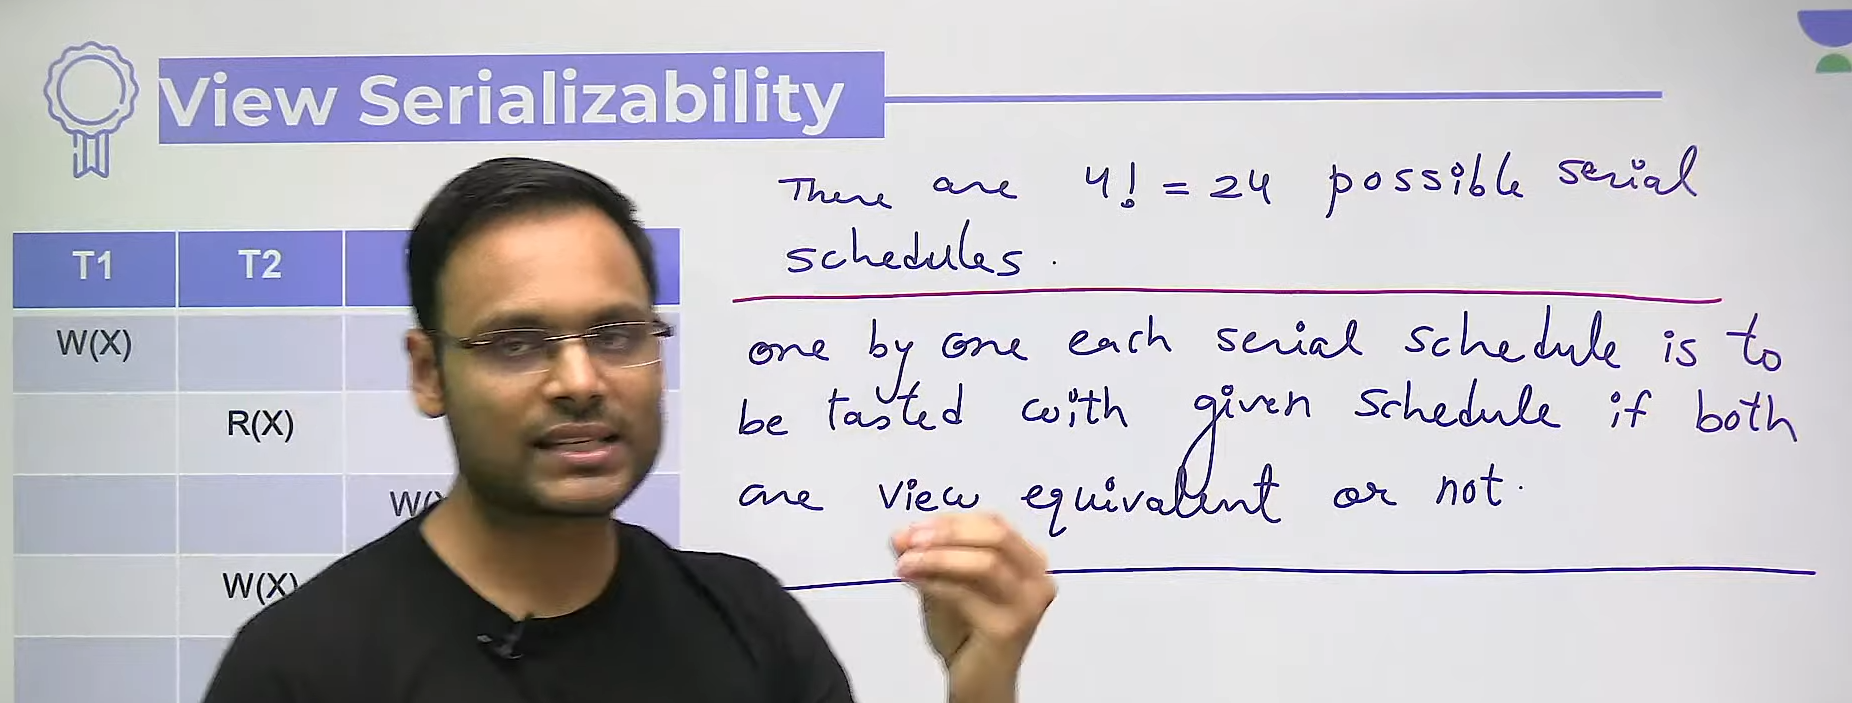 View Serializability
There are 4! = 24 possible serial
schedules.
T1 T2
W(X)
R(X)
W(X)
one by one each serial schedule is to
be tasted with given schedule if both
are view equivalent or not.